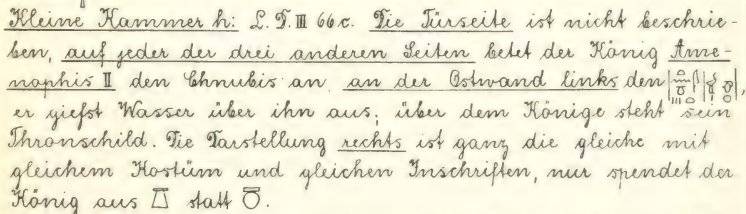 Kleine Kammer h: L. D. III 66 c. Die Türseite ist nicht beschrie-
ben, auf jeder der drei anderen Seiten betet der König Ame-
nophis II den Chnubis an an der Ostwand links den
er giefst Wasser über ihn aus; über dem Könige steht sein
Thronschild. Die Darstellung rechts ist ganz die gleiche mit
gleichem Kostüm und gleichen Inschriften, nur spendet der
König aus statt